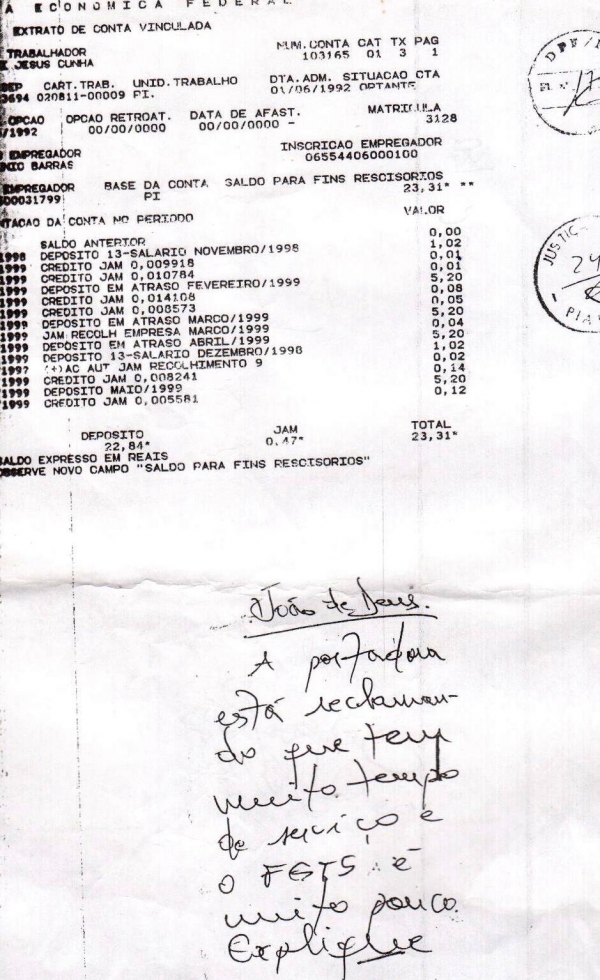 A ECONOMICA FEDERAL
EXTRATO DE CONTA VINCULADA
TRABALHADOR NUM.CONTA CAT TX PAG
JESUS CUNHA 103165 01 3 1
CART.TRAB. UNID.TRABALHO DTA.ADM. SITUACAO CTA
0694 020811-00009 PI. 01/06/1992 OPTANTE
OPCAO OPCAO RETROAT. DATA DE AFAST. MATRICULA
/1992 00/00/0000 00/00/0000 - 3128
EMPREGADOR INSCRICAO EMPREGADOR
BARRAS 06554406000100
EMPREGADOR BASE DA CONTA SALDO PARA FINS RESCISORIOS
00031799 PI 23,31* **
NTACAO DA CONTA NO PERIODO VALOR
SALDO ANTERIOR 0,00
1998 DEPOSITO 13-SALARIO NOVEMBRO/1998 1,02
1999 CREDITO JAM 0,009918 0,01
1999 CREDITO JAM 0,010784 0,01
1999 DEPOSITO EM ATRASO FEVEREIRO/1999 5,20
1999 CREDITO JAM 0,014108 0,08
1999 CREDITO JAM 0,008573 0,05
1999 DEPOSITO EM ATRASO MARCO/1999 5,20
1999 JAM RECOLH EMPRESA MARCO/1999 0,04
1999 DEPOSITO EM ATRASO ABRIL/1999 5,20
1999 DEPOSITO 13-SALARIO DEZEMBRO/1998 1,02
/1999 (+)AC AUT JAM RECOLHIMENTO 9 0,02
/1999 CREDITO JAM 0,008241 0,14
/1999 DEPOSITO MAIO/1999 5,20
/1999 CREDITO JAM 0,005581 0,12
DEPOSITO JAM TOTAL
22,84* 0,47* 23,31*
SALDO EXPRESSO EM REAIS
OBSERVE NOVO CAMPO "SALDO PARA FINS RESCISORIOS"
João de Deus.
A portadora
está reclaman-
do que tem
muito tempo
de serviço e
o FGTS é
muito pouco.
Explique